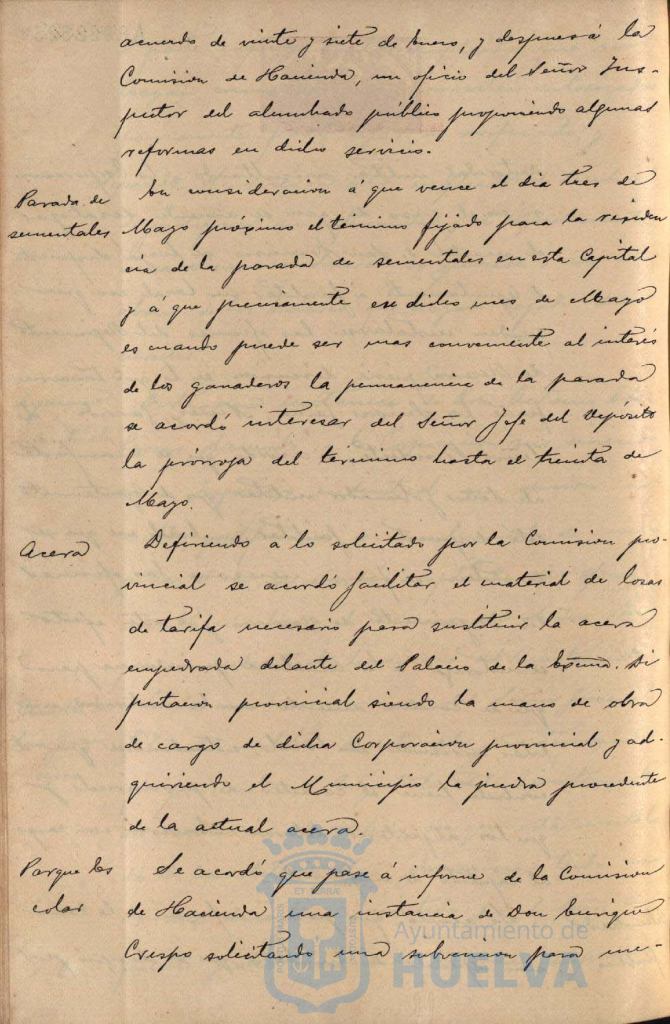 acuerdo de veinte y siete de Enero, y despues á la
Comision de Hacienda, un oficio del Señor Ins-
pector del alumbrado público proponiendo algunas
reformas en dicho servicio.
Parada de
sementales
En consideracion á que vence el dia tres de
Mayo próximo el término fijado para la residen
cia de la parada de sementales en esta Capital
y á que precisamente ese dicho mes de Mayo
es cuando puede ser mas conveniente al interés
de los ganaderos la permanencia de la parada
se acordó interesar del Señor Jefe del Depósito
la prórroga del término hasta el treinta de
Mayo.
Acera
Defiriendo á lo solicitado por la Comision pro-
vincial se acordó facilitar el material de losas
de tarifa necesario para sustituir la acera
empedrada delante del Palacio de la Excma. Di
putacion provincial siendo la mano de obra
de cargo de dicha Corporacion provincial y ad-
quiriendo el Municipio la piedra procedente
de la actual acera.
Parque Es
colar
Se acordó que pase á informe de la Comision
de Hacienda una instancia de Don Enrique
Crespo solicitando una subvencion para me-
Ayuntamiento de
HUELVA